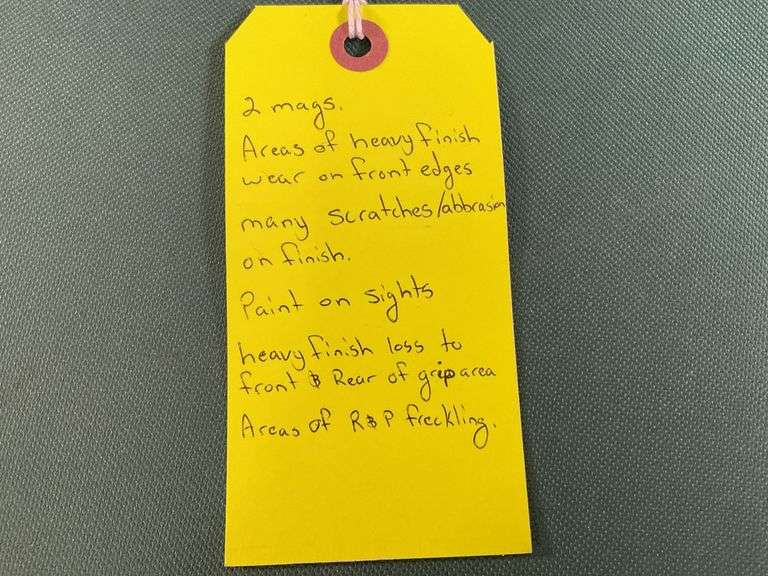 2 mags.
Areas of heavy finish
wear on front edges
many scratches/abbrasion
on finish.
Paint on sights
heavy finish loss to
front & Rear of grip area
Areas of R&P freckling.